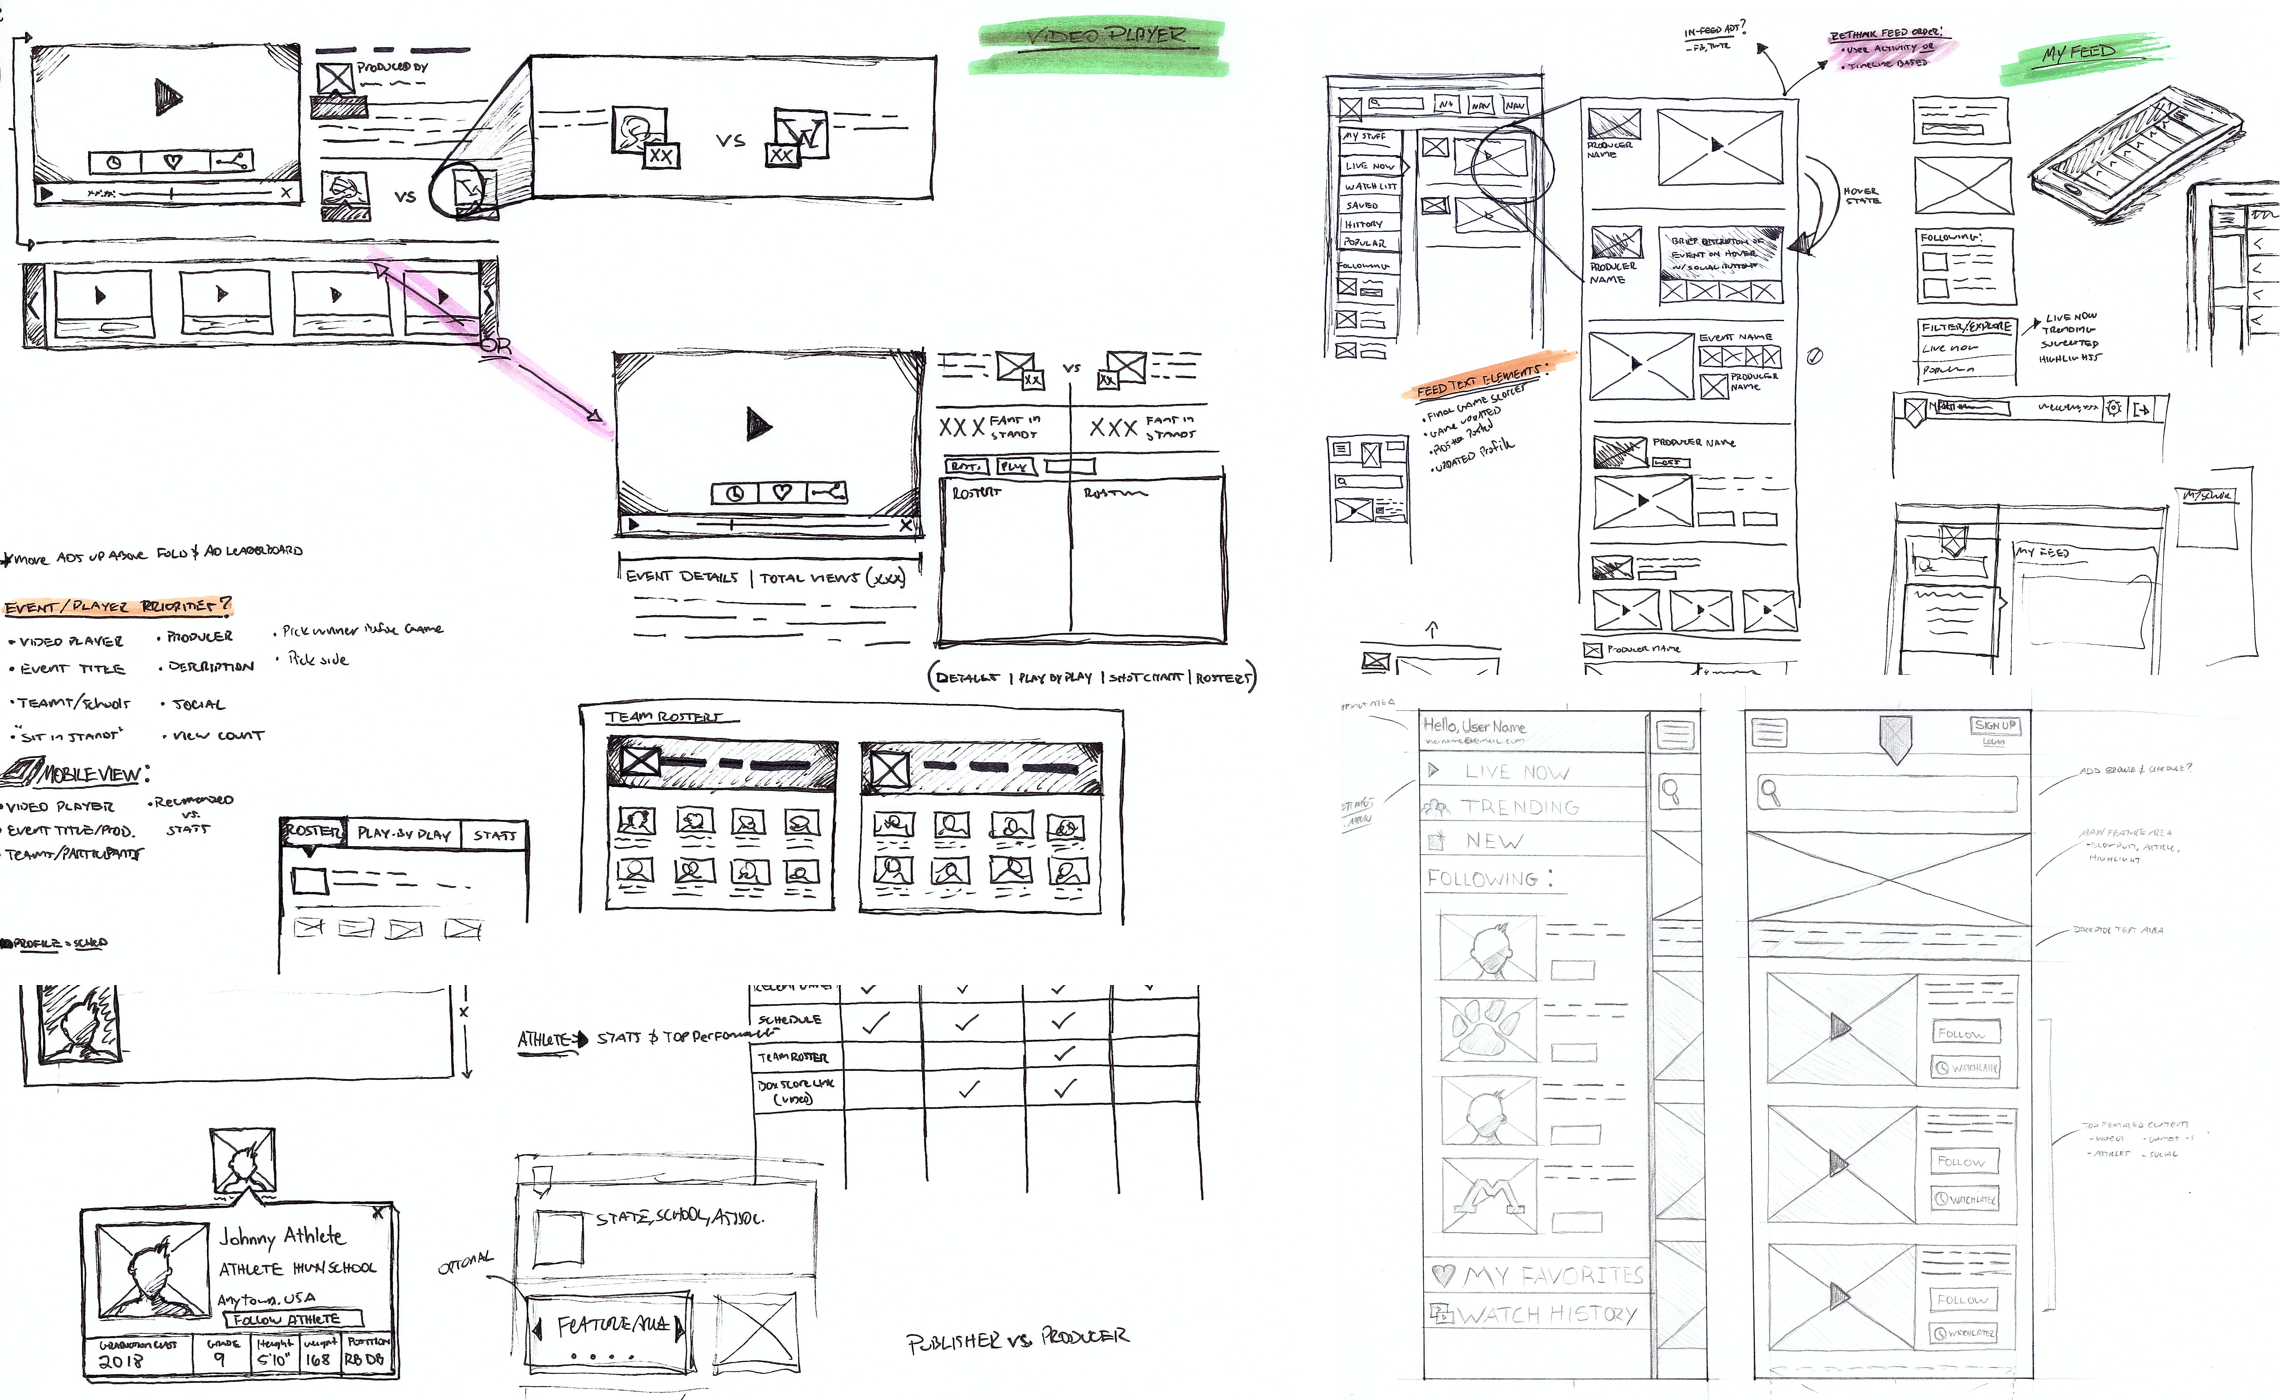 VIDEO PLAYER
PRODUCED BY
VS
XX
VS
XX
OR
VS
XX
XX
XXX FANS IN STANDS
XXX FANS IN STANDS
ROST.
PLAY
ROSTERS
EVENT DETAILS | TOTAL VIEWS (XXX)
(DETAILS | PLAY BY PLAY | SHOT CHART | ROSTERS)
MOVE ADS UP ABOVE FOLD & AD LEADERBOARD
EVENT/PLAYER PRIORITIES?
• VIDEO PLAYER
• EVENT TITLE
• TEAMS/Schools
• "SIT IN STANDS"
• PRODUCER
• DESCRIPTION
• SOCIAL
• VIEW COUNT
• Pick winner Before Game
• Pick side
MOBILE VIEW:
• VIDEO PLAYER
• EVENT TITLE/PROD.
• TEAMS/PARTICIPANTS
VS.
STATS
ROSTER
PLAY-BY PLAY
STATS
TEAM ROSTERS
PROFILE = SCHED
X
ATHLETE → STATS & TOP Performances
SCHEDULE
TEAM ROSTER
BOX SCORE LINK
(VIDEO)
X
Johnny Athlete
ATHLETE HIGH SCHOOL
Anytown, USA
FOLLOW ATHLETE
GRADUATION CLASS
2018
GRADE
9
Height
5'10"
Weight
168
POSITION
RB DB
STATE, SCHOOL, ASSOC.
OPTIONAL
FEATURE AREA
PUBLISHER VS. PRODUCER
IN-FEED ADS?
- FB, TWTR
RETHINK FEED ORDER:
• USER ACTIVITY OR
• TIMELINE BASED
MY FEED
NAV
NAV
MY STUFF
LIVE NOW
WATCH LIST
SAVED
HISTORY
POPULAR
FOLLOWING
PRODUCER
NAME
HOVER
STATE
PRODUCER
NAME
BRIEF DESCRIPTION OF
EVENT ON HOVER
W/ SOCIAL BUTTONS
EVENT NAME
PRODUCER
NAME
PRODUCER NAME
PRODUCER NAME
FEED TEXT ELEMENTS:
• FINAL GAME SCORES
• GAME UPDATED
• ROSTER POSTED
• UPDATED Profile
FOLLOWING:
FILTER/EXPLORE
LIVE NOW
POPULAR
LIVE NOW
TRENDING
SUGGESTED
HIGHLIGHTS
MY FEED
MY SCHOOL
Hello, User Name
LIVE NOW
TRENDING
NEW
FOLLOWING:
MY FAVORITES
WATCH HISTORY
SIGN UP
LOGIN
ADD BROWSE & SCHEDULE?
MAIN FEATURE AREA
HIGHLIGHT
DESCRIPTOR TEXT AREA
FOLLOW
WATCH LATER
FOLLOW
WATCH LATER
FOLLOW
WATCH LATER
TOP FEATURED CONTENT
- VIDEOS
- ARTICLES
- SOCIAL